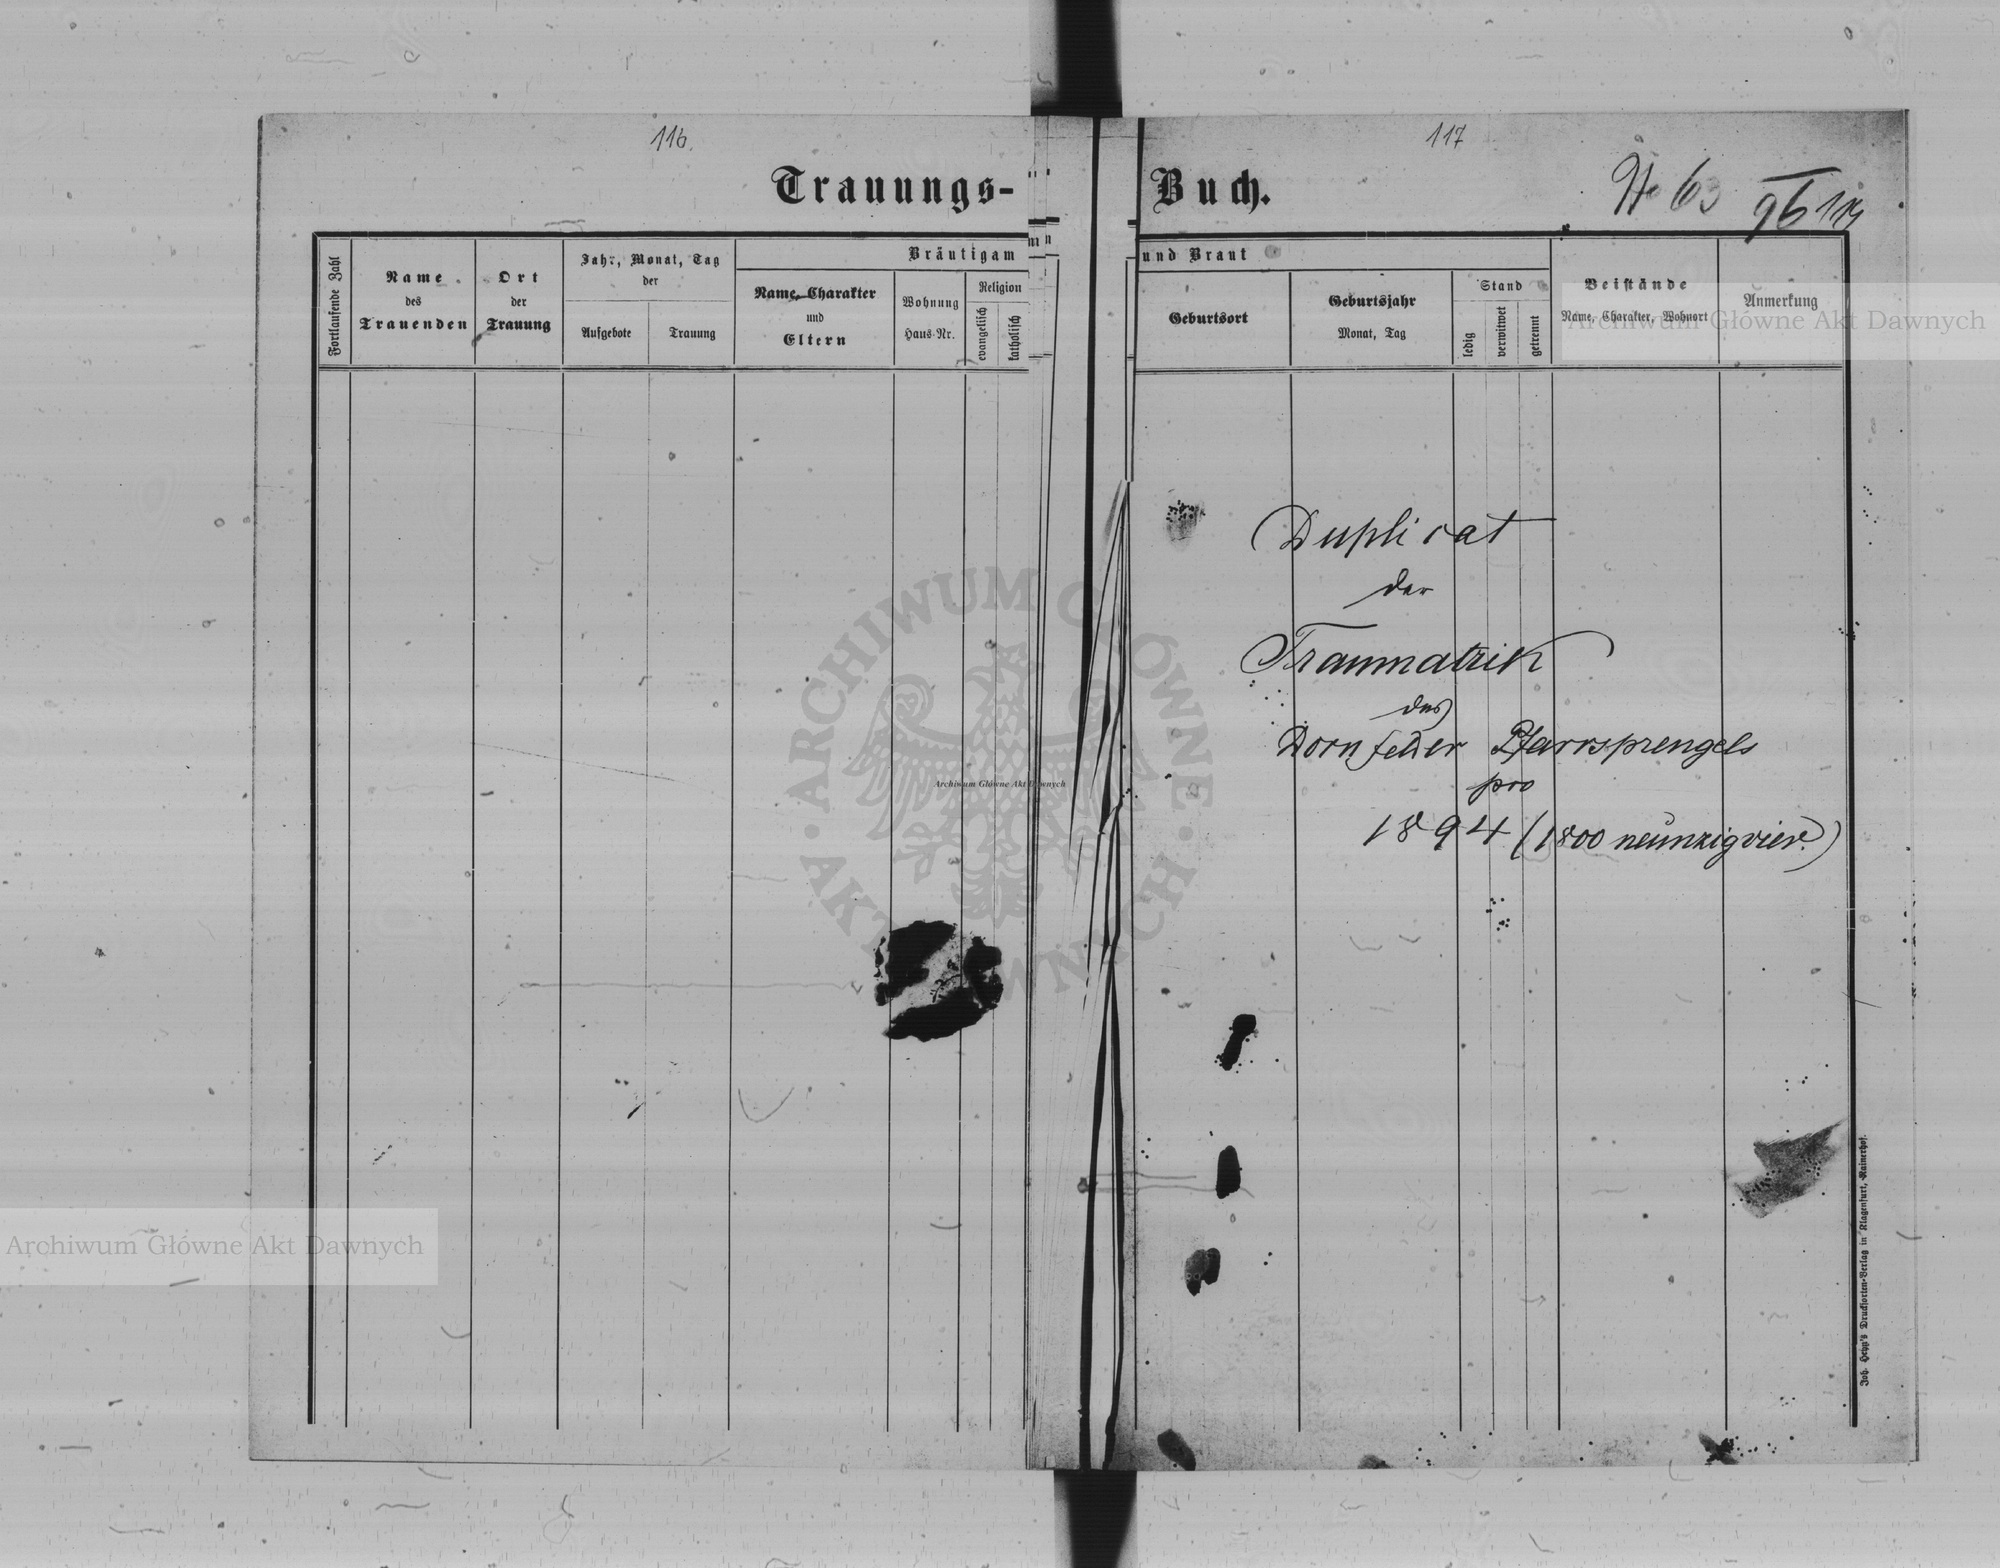 116.
117
Trauungs-Buch.
No 63
Fortlaufende Zahl
Name des Trauenden
Ort der Trauung
Jahr, Monat, Tag der
Aufgebote
Trauung
Bräutigam und Braut
Name, Charakter und Eltern
Wohnung Haus-Nr.
Religion
evangelisch
katholisch
Geburtsort
Geburtsjahr Monat, Tag
Stand
ledig
verwitwet
getrennt
Beistände
Name, Charakter, Wohnort
Anmerkung
Archiwum Główne Akt Dawnych
Duplicat
der
Traumatrik
des
Dornfelder Pfarrsprengels
pro
1894 (1800 neunzigvier.)
ARCHIWUM GŁÓWNE AKT DAWNYCH
Archiwum Główne Akt Dawnych
Archiwum Główne Akt Dawnych
Joh. Heyn's Drucksorten-Verlag in Klagenfurt, Rainerhof.